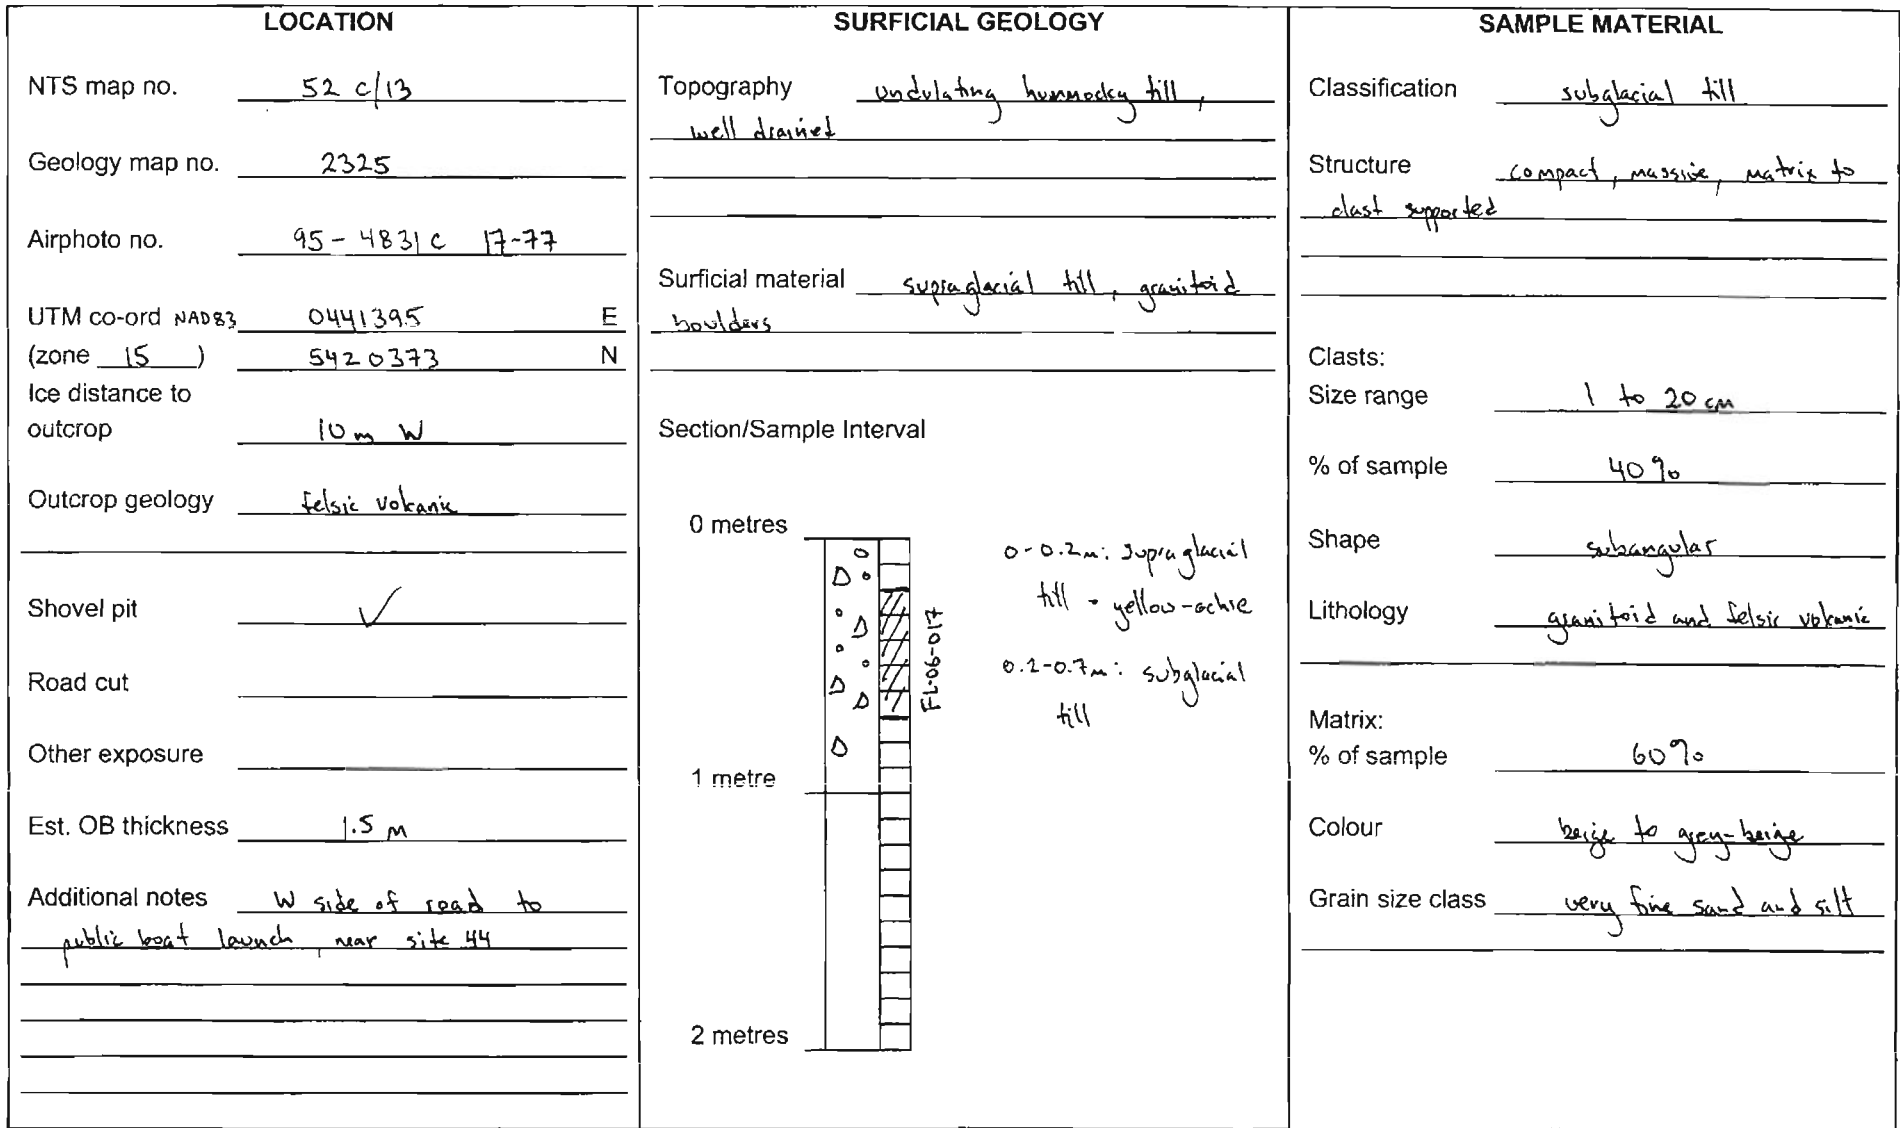 LOCATION
NTS map no. 52 c/13
Geology map no. 2325
Airphoto no. 95-4831c 17-77
UTM co-ord NAD83 0441395 E
(zone 15 ) 5420373 N
Ice distance to
outcrop 10 m W
Outcrop geology felsic volcanic
Shovel pit ✓
Road cut
Other exposure
Est. OB thickness 1.5 m
Additional notes W side of road to
public boat launch, near site 44
SURFICIAL GEOLOGY
Topography undulating hummocky till,
well drained
Surficial material supraglacial till, granitoid
boulders
Section/Sample Interval
0 metres
0-0.2m: supraglacial
till - yellow-ochre
0.2-0.7m: subglacial
till
FL-06-017
1 metre
2 metres
SAMPLE MATERIAL
Classification subglacial till
Structure compact, massive, matrix to
clast supported
Clasts:
Size range 1 to 20 cm
% of sample 40%
Shape subangular
Lithology granitoid and felsic volcanic
Matrix:
% of sample 60%
Colour beige to grey-beige
Grain size class very fine sand and silt